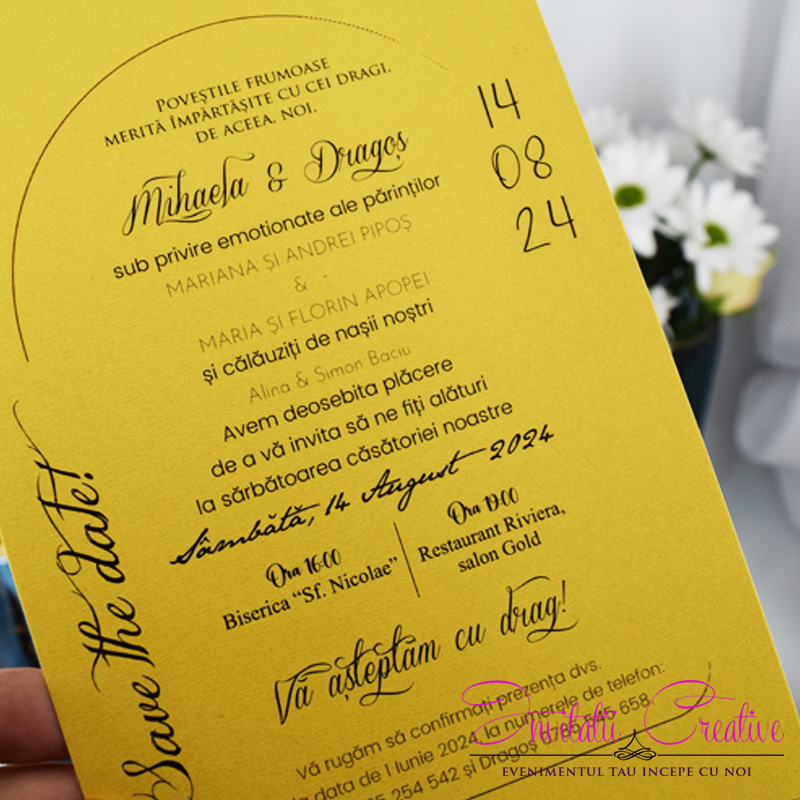 POVEȘTILE FRUMOASE
MERITĂ ÎMPĂRTĂȘITE CU CEI DRAGI.
DE ACEEA, NOI,
Mihaela & Dragoș
sub privire emotionate ale părinților
MARIANA ȘI ANDREI PIPOȘ
&
MARIA ȘI FLORIN APOPEI
și călăuziți de nașii noștri
Alina & Simon Baciu
Avem deosebita plăcere
de a vă invita să ne fiți alături
la sărbătoarea căsătoriei noastre
Sâmbătă, 14 August 2024
Ora 16:00
Biserica “Sf. Nicolae”
Ora 19:00
Restaurant Riviera,
salon Gold
Vă așteptăm cu drag!
Vă rugăm să confirmați prezența dvs.
la data de 1 Iunie 2024, la numerele de telefon:
254 542 și Dragoș 0765 645 658.
14
08
24
Save the date!
Invitatii Creative
EVENIMENTUL TAU INCEPE CU NOI